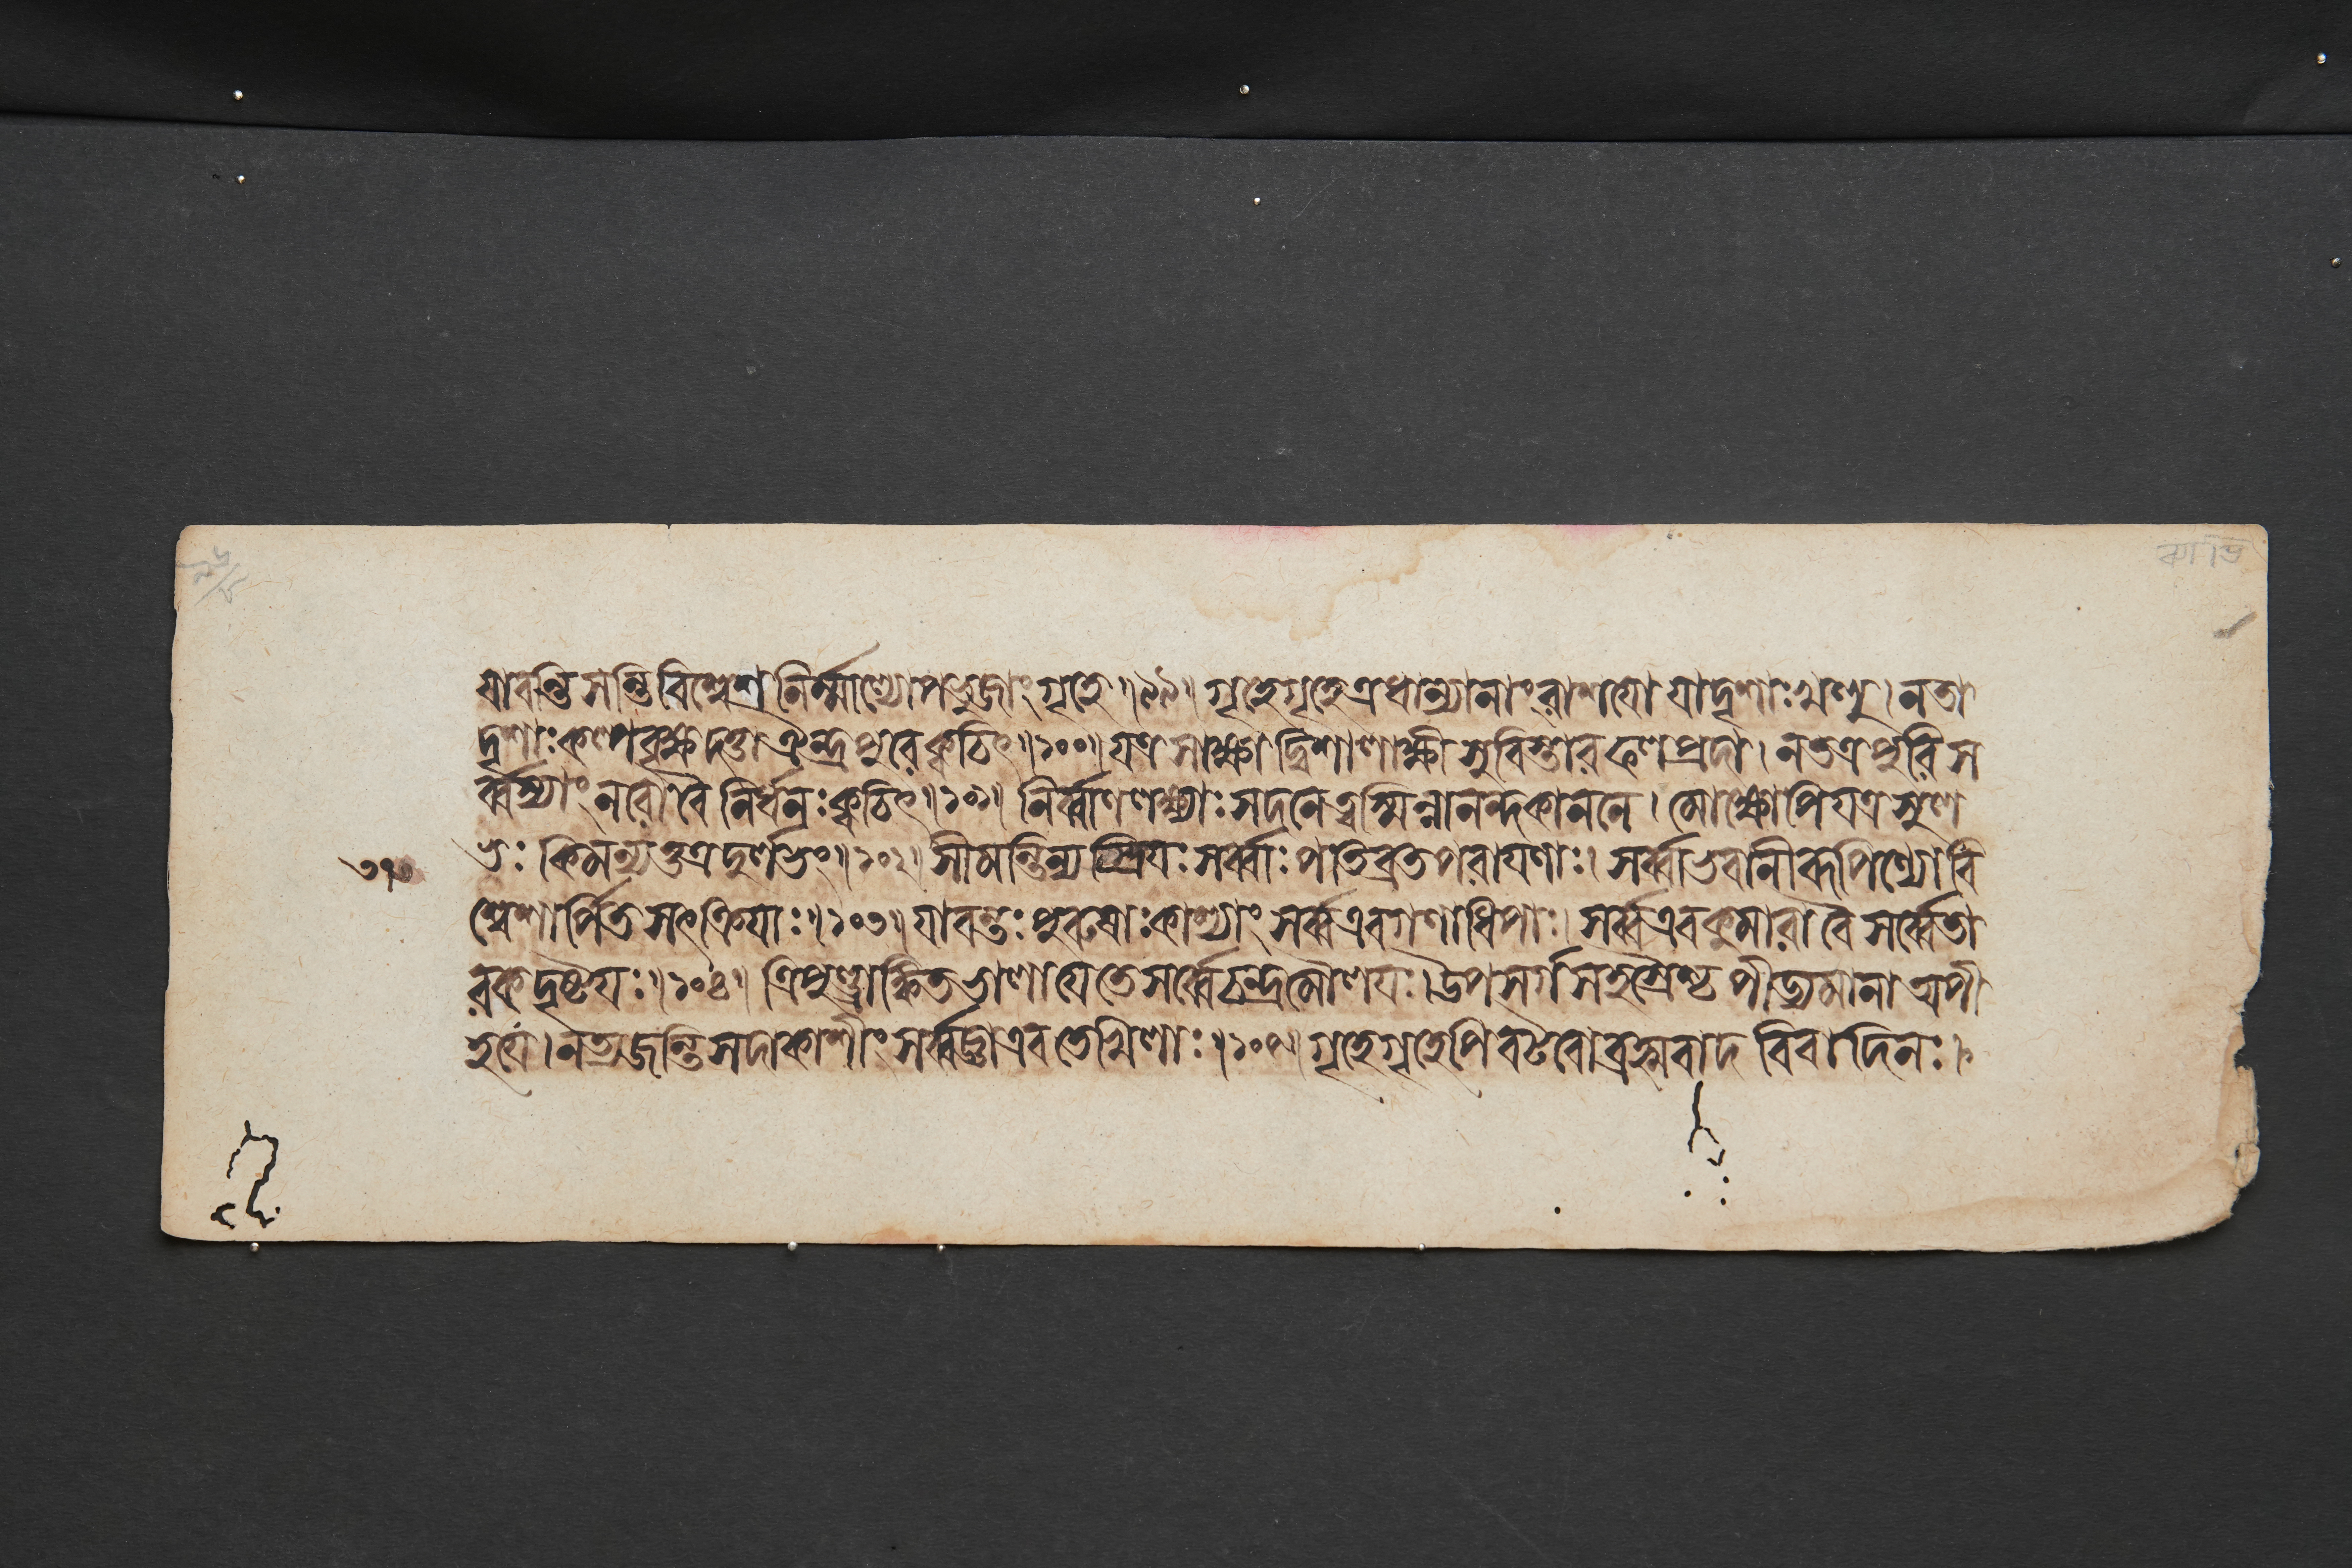 যাবন্তি সন্তি বিশ্বেশ নির্ম্মাল্যোপভুজাং গৃহে॥৯৯॥ গৃহে গৃহেত্র ধান্যানাং রাশয়ো যাদৃশাঃ খলু। ন তা
দৃশাঃ কল্পবৃক্ষদত্তা ঐন্দ্রপুরে ক্বচিৎ॥১০০॥ যত্র সাক্ষাদ্বিশালাক্ষী সুবিস্তারফলপ্রদা। ন তত্র পুরি স
র্ব্বস্যাং নরো বৈ নির্ধনঃ ক্বচিৎ॥১০১॥ নির্ব্বাণলক্ষ্ম্যাঃ সদনে ত্বস্মিন্নানন্দকাননে। মোক্ষোপি যত্র সুল
ভঃ কিমন্যত্তত্র দুর্লভং॥১০২॥ সীমন্তিন্যস্ত্রিয়ঃ সর্ব্বাঃ পতিব্রতপরায়ণাঃ। সর্ব্বা ভবানীরূপিণ্যো বি
শ্বেশার্পিতসৎক্রিয়াঃ॥১০৩॥ যাবন্তঃ পুরুষাঃ কাশ্যাং সর্ব্ব এব গণাধিপাঃ। সর্ব্ব এব কুমারা বৈ সর্ব্বে তা
রকদৃষ্টয়ঃ॥১০৪॥ ত্রিপুণ্ড্রাঙ্কিতভালা যে তে সর্ব্বে চন্দ্রমৌলয়ঃ। উপসর্গসহস্রৈস্তু পীড্যমানা অপী
হ যে। ন ত্যজন্তি সদা কাশীং সর্ব্বজ্ঞা এব তেখিলাঃ॥১০৫॥ গৃহে গৃহেপি বটবো ব্রহ্মবাদ বিবাদিনঃ।